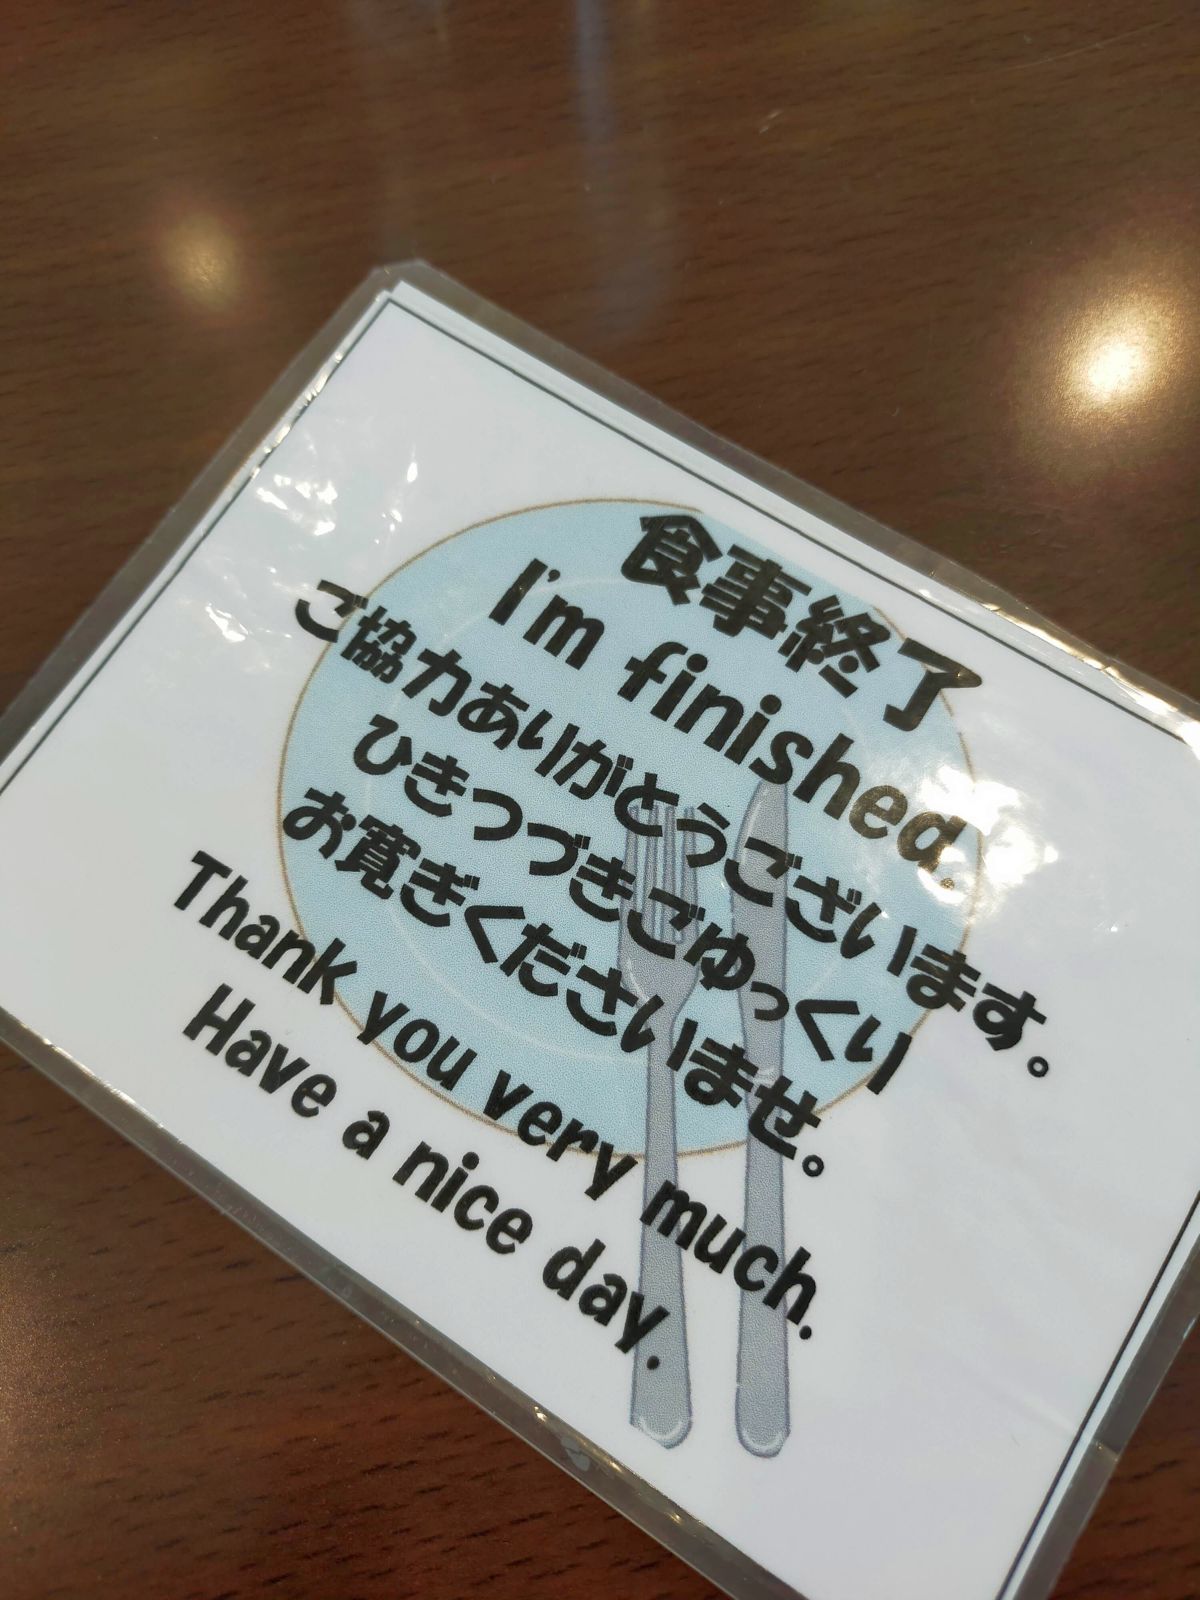 食事終了
I'm finished.
ご協力ありがとうございます。
ひきつづきごゆっくり
お寛ぎくださいませ。
Thank you very much.
Have a nice day.